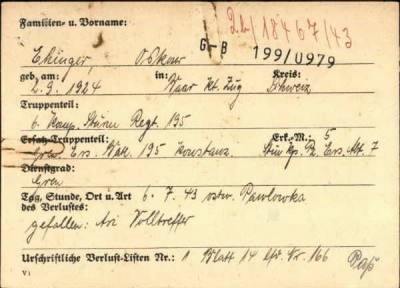 Familien- u. Vorname: 2b/18467/43
Ehinger, Oskar G-B 199/0979
geb. am: in: Kreis:
2.9.1924 Baar Kt. Zug Schweiz
Truppenteil:
6. Komp. Sturm Regt. 195
Ersatz-Truppenteil: Erk.-M.: 5
Gren. Ers. Batl. 195 Konstanz Stu. Kp. Pz. Ers. Abt. 7
Dienstgrad:
Gren
Tag, Stunde, Ort u. Art 6. 7. 43 ostw. Pawlowka
des Verlustes:
gefallen: Ari Volltreffer
Urschriftliche Verlust-Listen Nr.: 1 Blatt 14 lfd. Nr. 166
V1